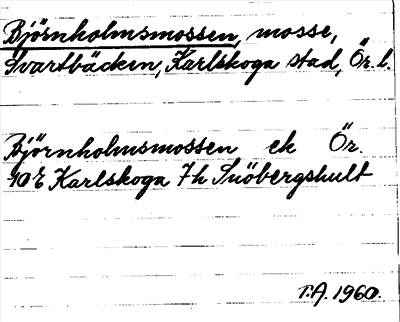 Björnholmsmossen, mosse,
Svartbäcken, Karlskoga stad, Ör. l.
Björnholmsmossen ek Ör.
10E Karlskoga 7h Snöbergshult
T.A. 1960.